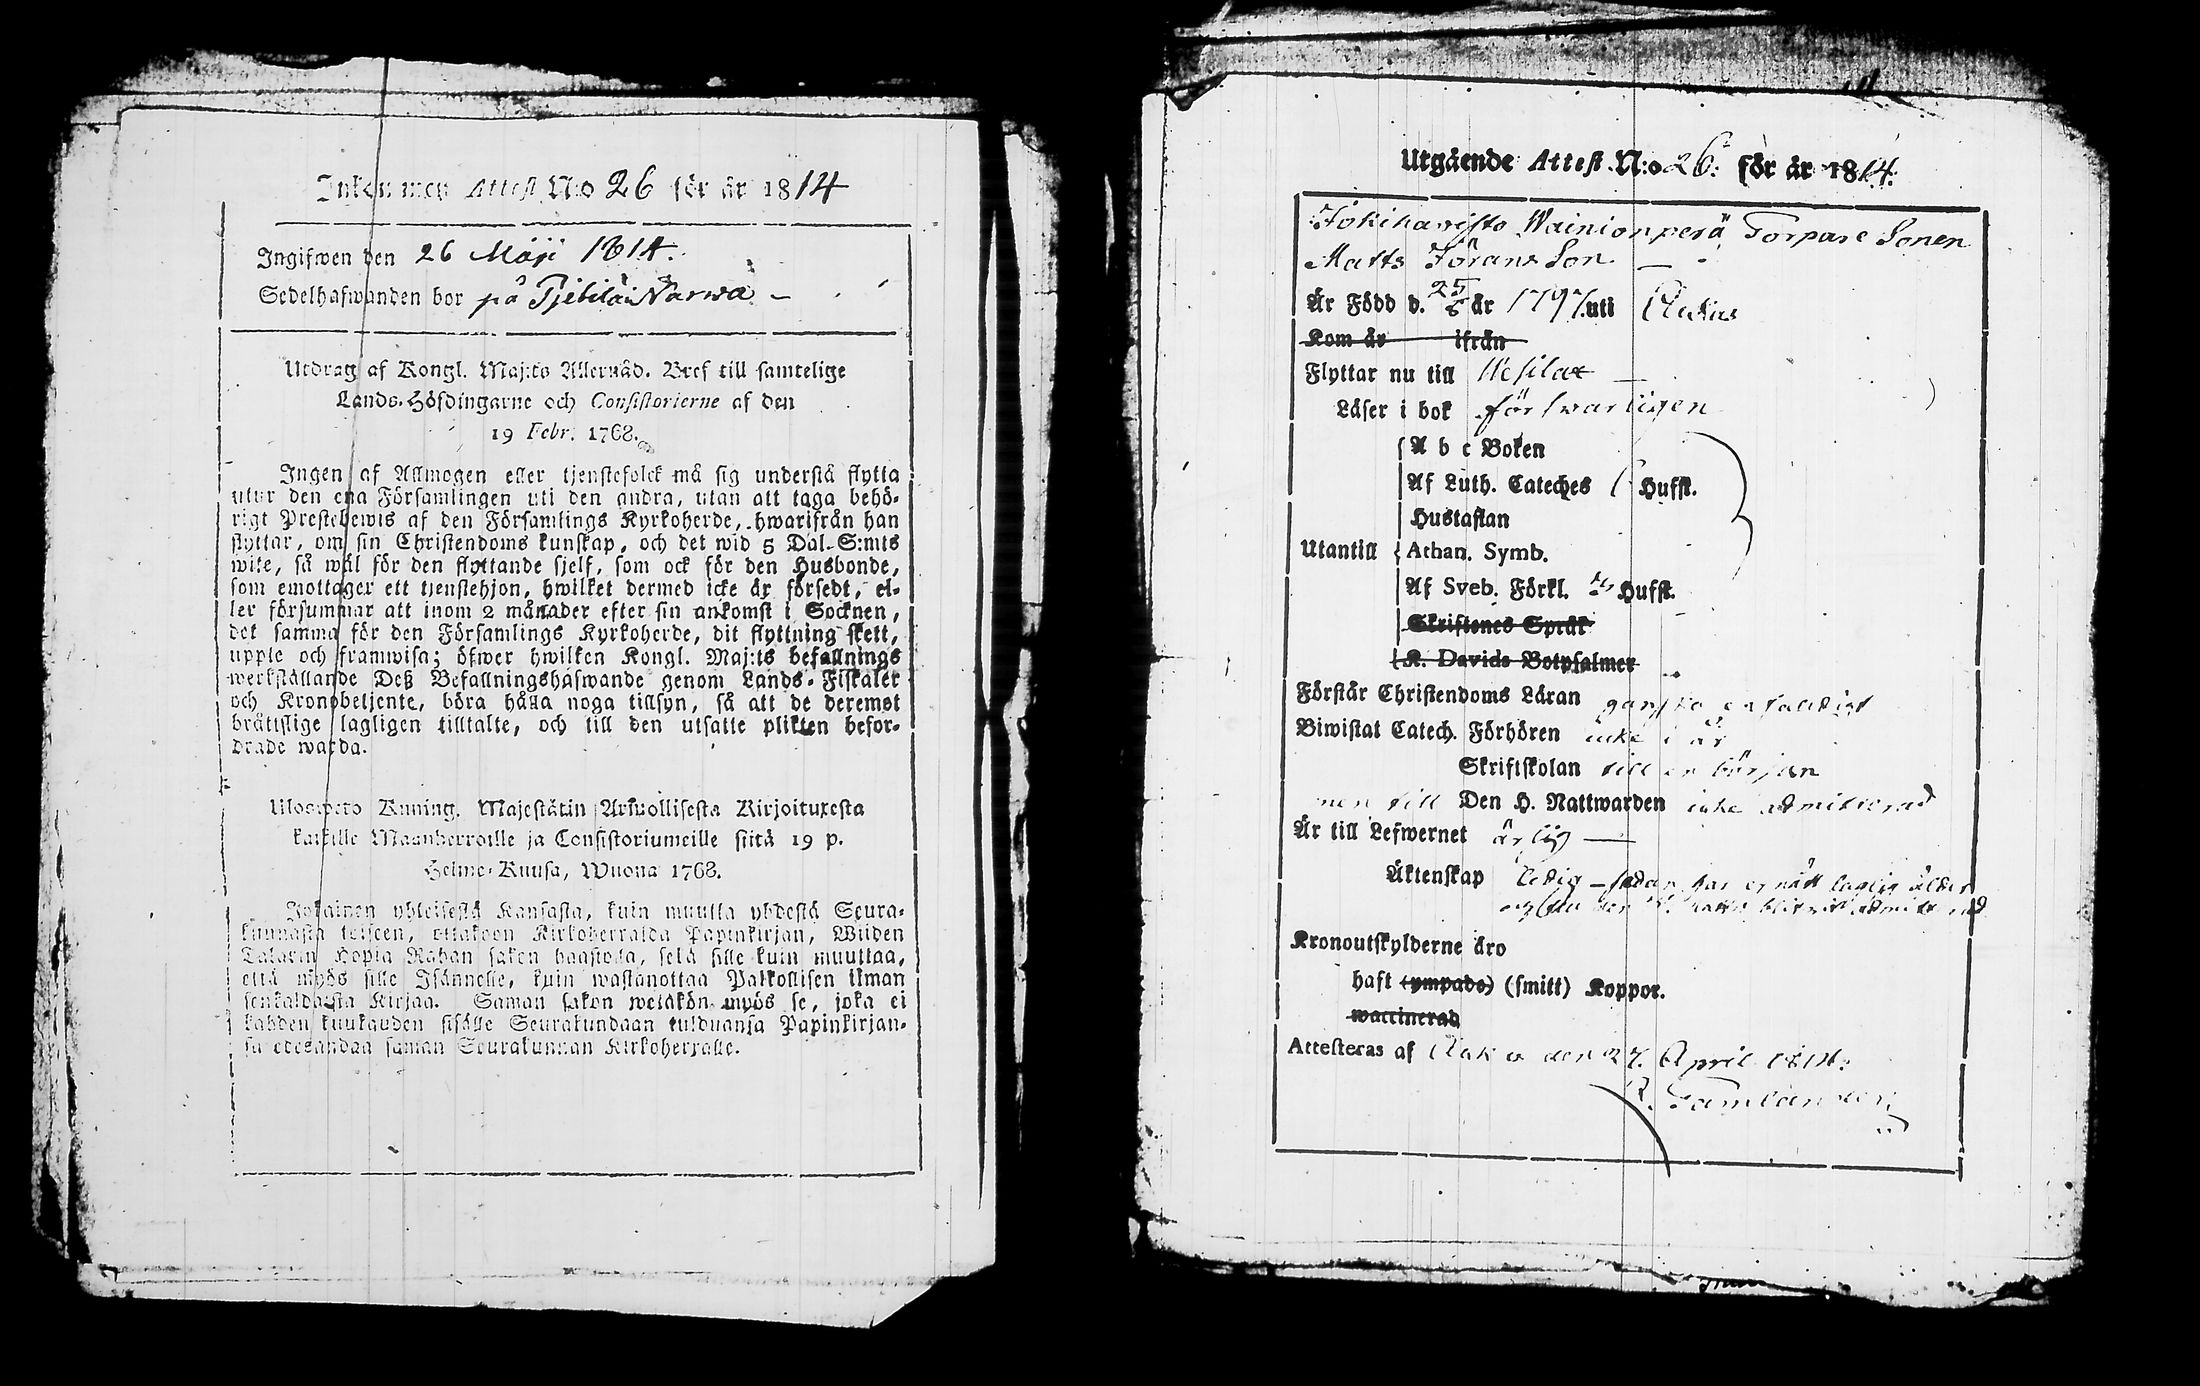 Inkommen Attest N:o 26 för år 1814
Ingifwen den 26 Maji 1814.
Sedelhafwanden bor på Narwa
Utdrag af Kongl. Maj:ts Allernåd. Bref till samtelige
Lands-Höfdingarne och Consistorierne af den
19 Febr. 1768.
Ingen af Allmogen eller tjenstefolck må sig understå flytta
utur den ena Församlingen uti den andra, utan att taga behö-
rigt Prestebewis af den Församlings Kyrkoherde, hwarifrån han
flyttar, om sin Christendoms kunskap, och det wid 5 Dal. S:mts
wite, så wäl för den flyttande sjelf, som ock för den Husbonde,
som emottager ett tjenstehjon, hwilket dermed icke är försedt, el-
ler försummar att inom 2 månader efter sin ankomst i Socknen,
det samma för den Församlings Kyrkoherde, dit flyttning skett,
uppte och framwisa; öfwer hwilken Kongl. Maj:ts befallnings
werkställande Deß Befallningshafwande genom Lands-Fiskaler
och Kronobetjente, böra hålla noga tillsyn, så att de deremot
bråttslige lagligen tilltalte, och till den utsatte plikten befor-
drade warda.
Uloswetto Kuning. Majestätin Armollisesta Kirjoituxesta
kaikille Maanherroille ja Consistoriumeille siitä 19 p.
Helme-Kuusa, Wuona 1768.
Jokainen yhteisestä Kansasta, kuin muutta yhdestä Seura-
kunnasta toiseen, ottakoon Kirkoherralda Papinkirjan, Wiiden
Talarin Hopia Rahan sakon haastolla, sekä sille kuin muuttaa,
että myös sille Isännelle, kuin wastanottaa Palkollisen ilman
senkaldaista Kirjaa. Saman sakon wetäkön myös se, joka ei
kahden kuukauden sisälle Seurakundaan tulduansa Papinkirjan-
sa edesandaa saman Seurakunnan Kirkoherralle.
Utgående Attest N:o 26. för år 1814.
Jokihavisto Wainionperä Torpare Sonen
Matts Jörans Son
Är Född d. 25/6 år 1797. uti
Kom år ifrån
Flyttar nu till Wesilax
Läser i bok försvarligen
A b c Boken
Af Luth. Cateches Hufst.
Hustaflan
Utantill Athan. Symb.
Af Sveb. Förkl. Hufst.
Skriftenes Språk
K. Davids Botpsalmer
Förstår Christendoms Läran ganska enfaldigt
Biwistat Catech. Förhören icke i år
Skriftskolan till en början
men till Den H. Nattwarden icke admitterad
Är till Lefwernet ärlig
Äktenskap ledig
Kronoutskylderne äro
haft (ympade) (smitt) Koppor.
waccinerad
Attesteras af den 27. April 1814.